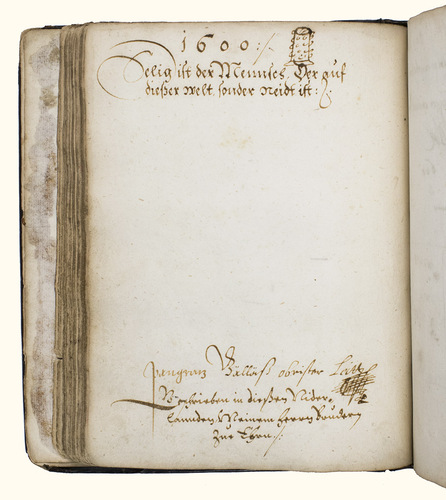 1600:/.
Selig ist der Mennsch, Der auf
dießer welt sonder Neidt ist:/.
pangratz Gälluß obrister
Geschrieben in dießen Nider-
Lannden Meinem herrn Brudern
Zur Ehrn:/.